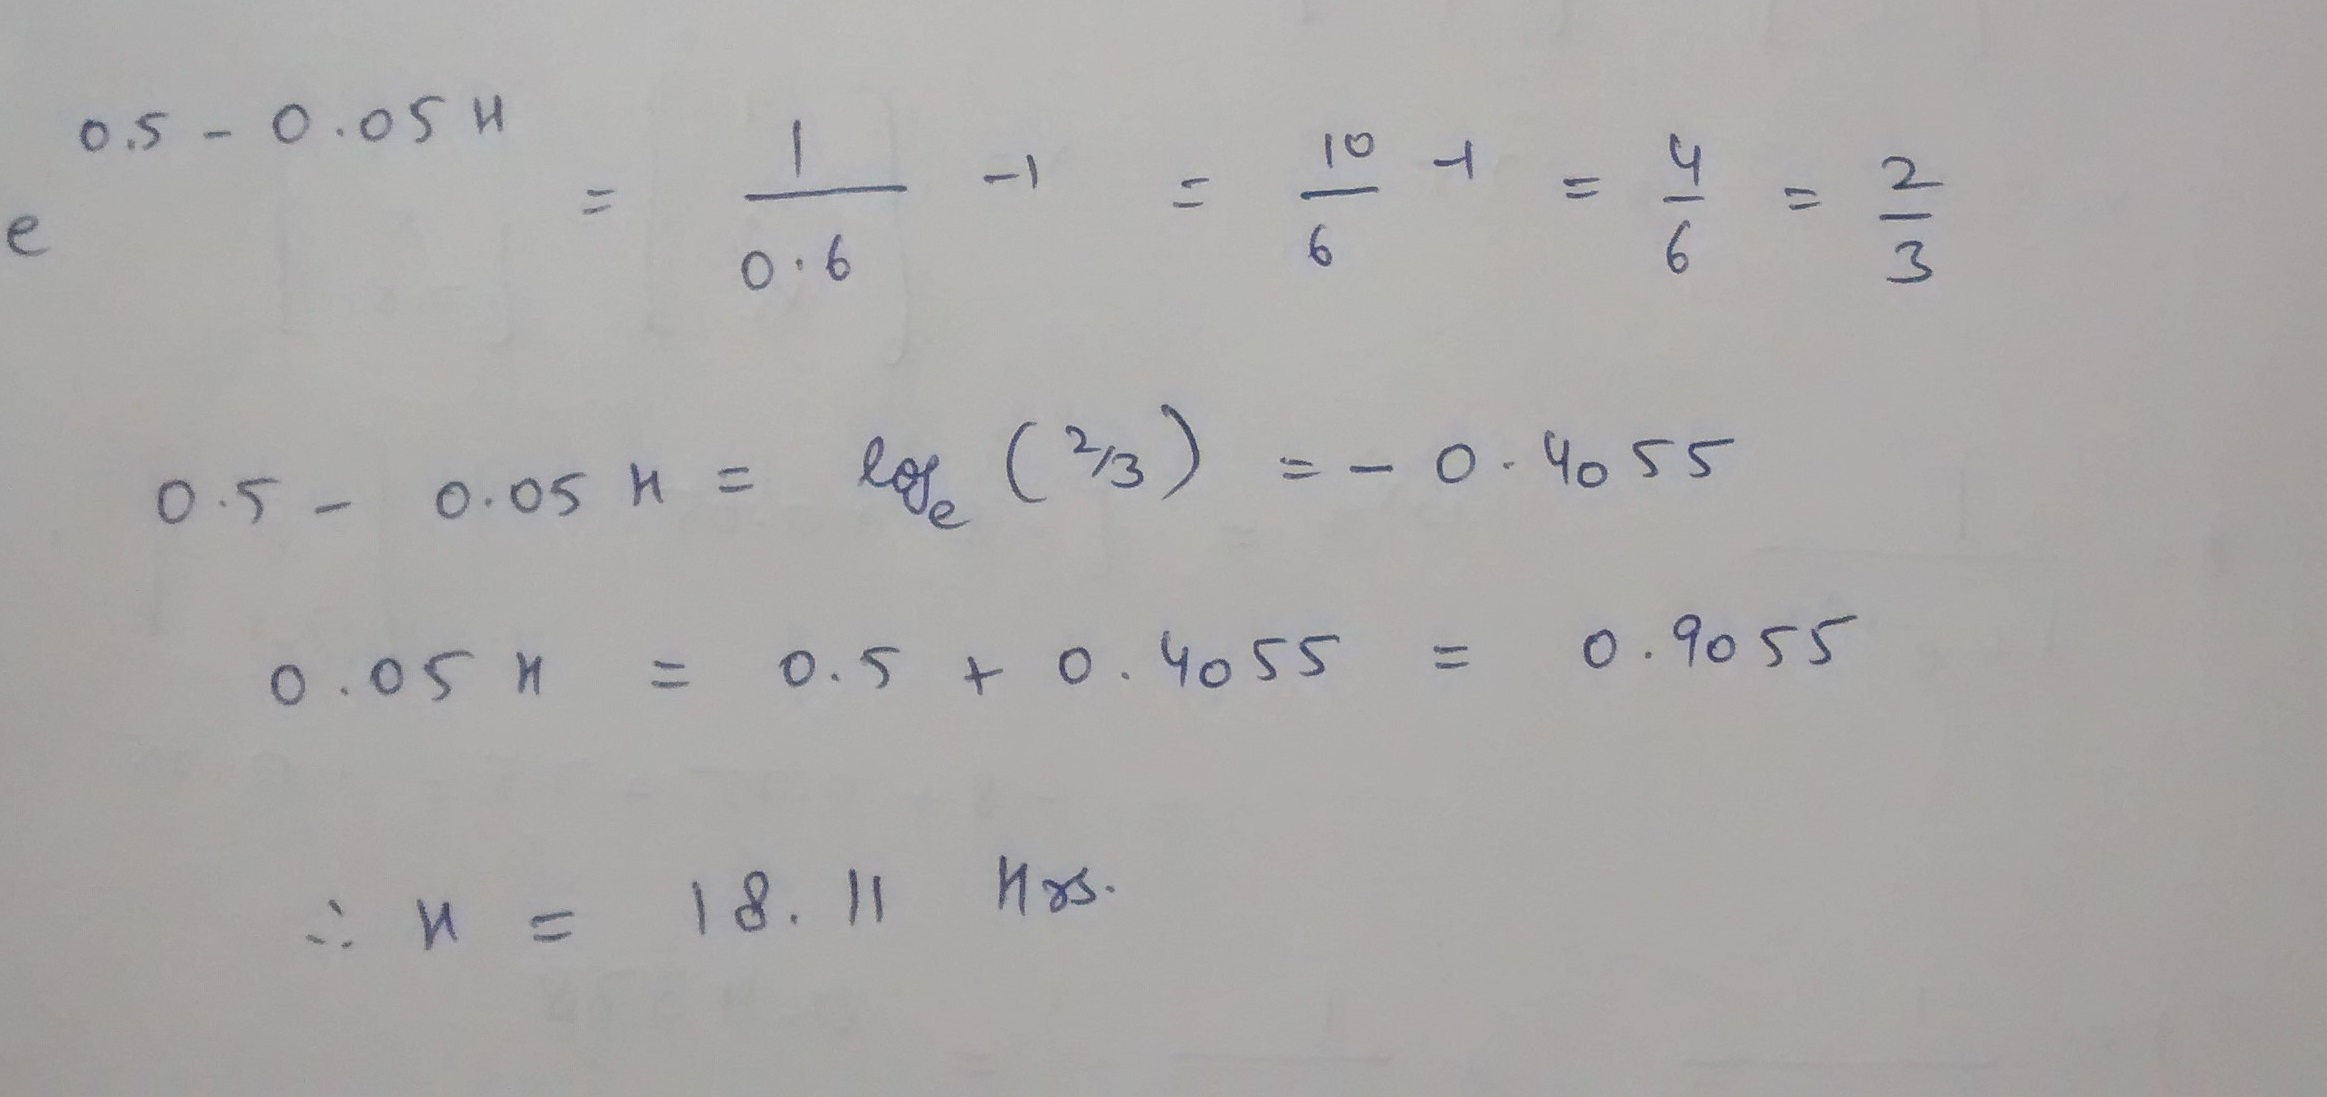 e^(0.5 - 0.05H) = 1/0.6 -1 = 10/6 -1 = 4/6 = 2/3
0.5 - 0.05H = logₑ (2/3) = - 0.4055
0.05H = 0.5 + 0.4055 = 0.9055
∴ H = 18.11 Hrs.